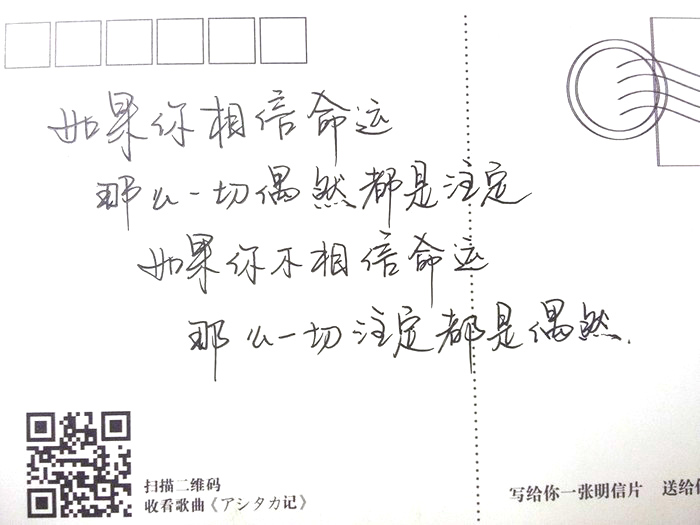 如果你相信命运
那么一切偶然都是注定
如果你不相信命运
那么一切注定都是偶然.
扫描二维码
收看歌曲《アシタカ记》
写给你一张明信片 送给你